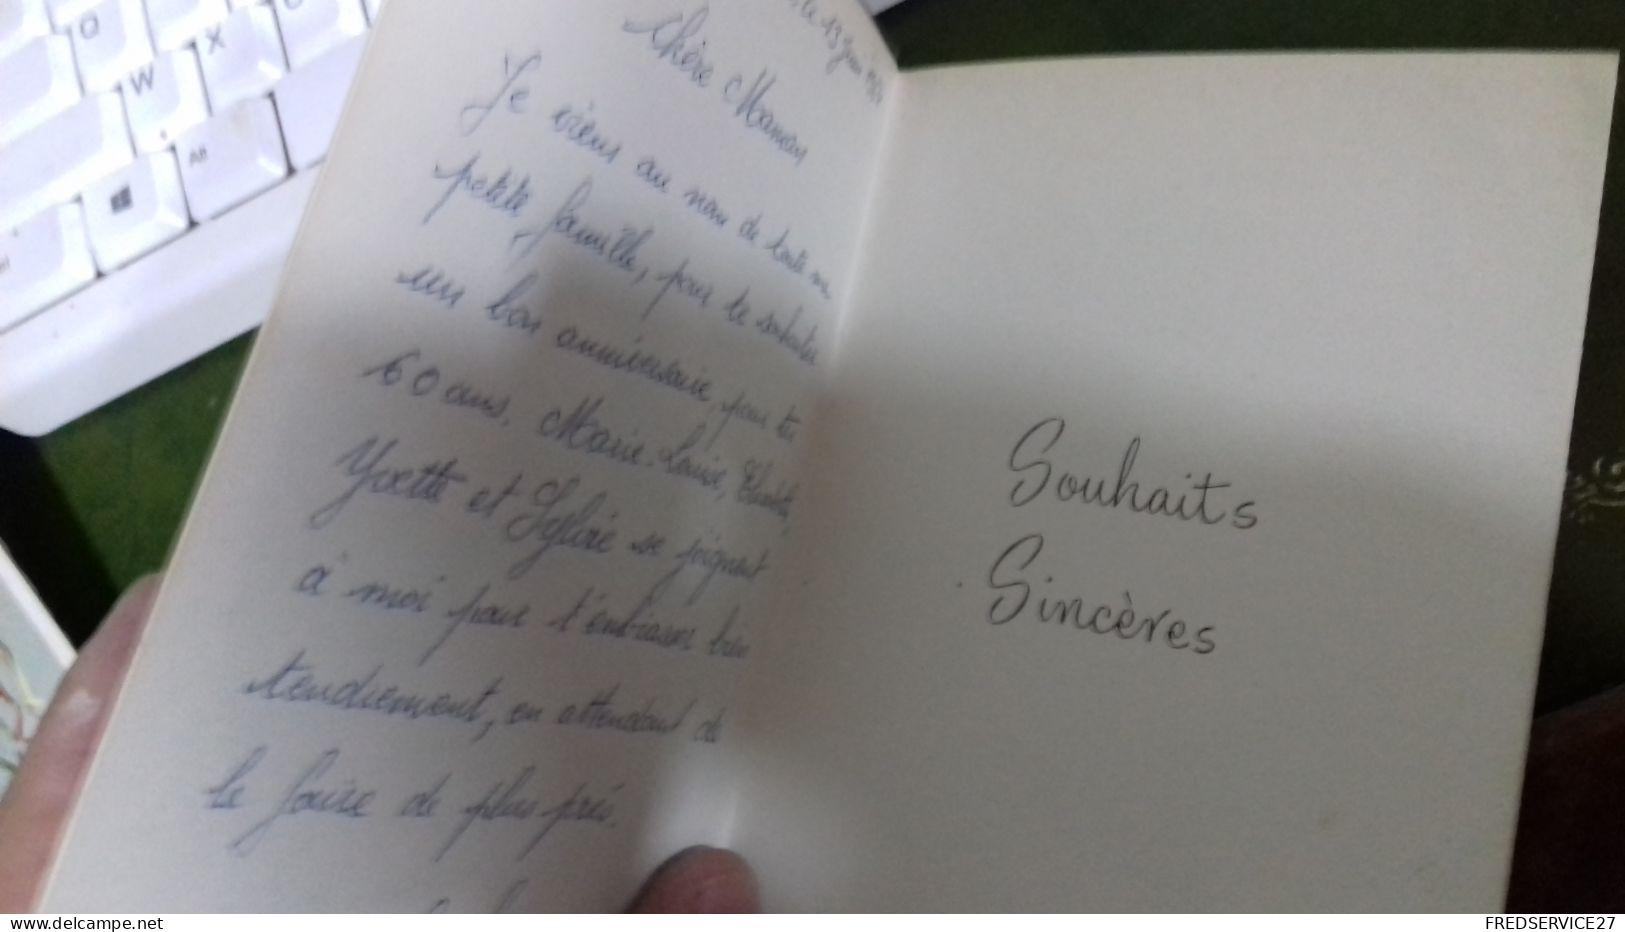 le 13 Juin
Chère Maman
Je viens au nom de toute ma
petite famille, pour te souhaiter
un bon anniversaire pour tes
60 ans. Marie-Louise, Elisabeth,
Yvette et Sylvie se joignent
à moi pour t'embrasser bien
tendrement, en attendant de
le faire de plus près.
Souhaits
Sincères
O
X
W
Alt
FREDSERVICE27
www.delcampe.net